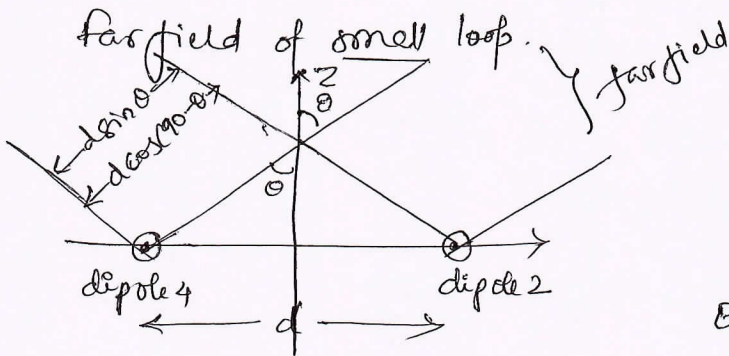 far field of small loop.
far field
Z
θ
d sin θ
d cos(90-θ
θ
dipole 4
dipole 2
d